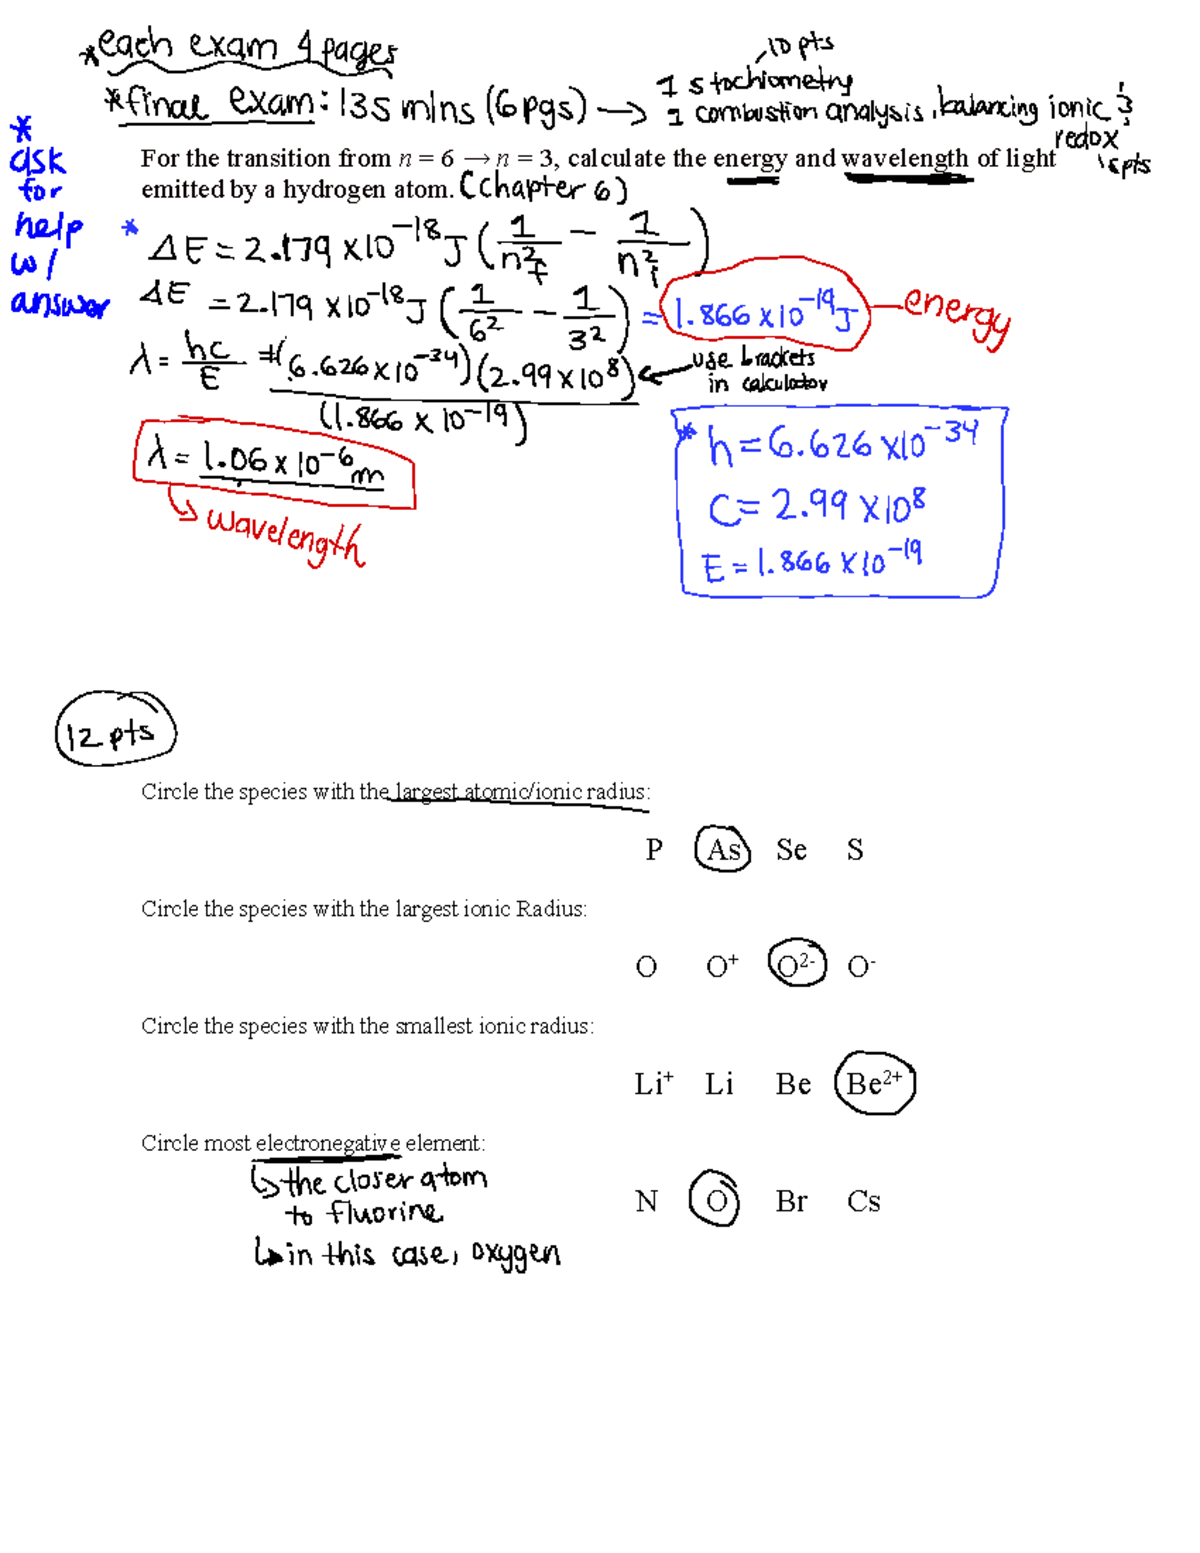 *each exam 4 pages
*final exam: 135 mins (6pgs) → 1 stochiometry, 10 pts
1 combustion analysis, balancing ionic &
redox
15pts
*
ask
for
help
w/
answer
For the transition from n = 6 → n = 3, calculate the energy and wavelength of light
emitted by a hydrogen atom. (Chapter 6)
* ΔE = 2.179 x10⁻¹⁸ J (1/n²f − 1/n²i)
ΔE = 2.179 x 10⁻¹⁸ J (1/6² − 1/3²) = 1.866 x10⁻¹⁹J — energy
λ = hc/E = (6.626 x 10⁻³⁴)(2.99 x 10⁸) / (1.866 x 10⁻¹⁹)
← use brackets
in calculator
λ = 1.06 x 10⁻⁶ m
↳ wavelength
* h = 6.626 x10⁻³⁴
C = 2.99 x10⁸
E = 1.866 x10⁻¹⁹
12 pts
Circle the species with the largest atomic/ionic radius:
P As Se S
Circle the species with the largest ionic Radius:
O O⁺ O²⁻ O⁻
Circle the species with the smallest ionic radius:
Li⁺ Li Be Be²⁺
Circle most electronegative element:
↳ the closer atom
to fluorine
↳ in this case, oxygen
N O Br Cs